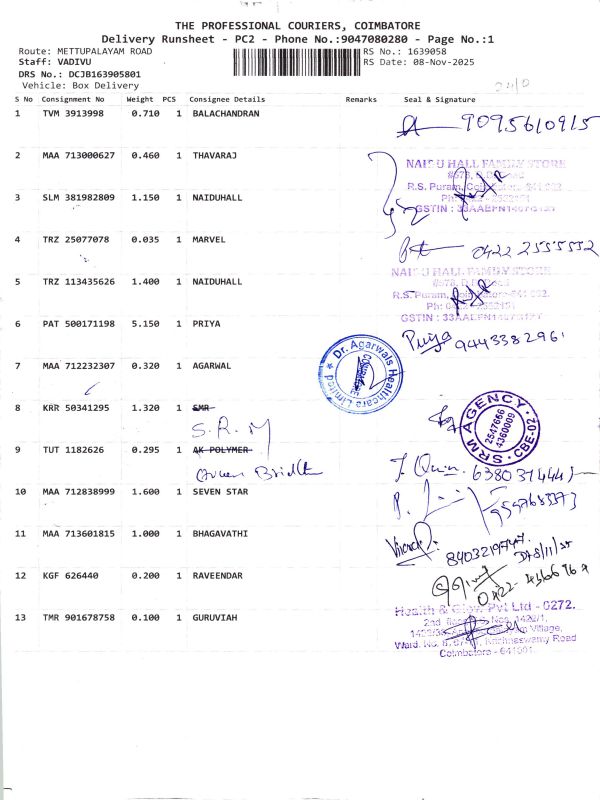 THE PROFESSIONAL COURIERS, COIMBATORE
Delivery Runsheet - PC2 - Phone No.:9047080280 - Page No.:1
Route: METTUPALAYAM ROAD RS No.: 1639058
Staff: VADIVU RS Date: 08-Nov-2025
DRS No.: DCJB163905801
Vehicle: Box Delivery
S No Consignment No Weight PCS Consignee Details Remarks Seal & Signature
1 TVM 3913998 0.710 1 BALACHANDRAN 9095610915
2 MAA 713000627 0.460 1 THAVARAJ
NAIDU HALL FAMILY STORE
R.S. Puram,
3 SLM 381982809 1.150 1 NAIDUHALL
GSTIN :
4 TRZ 25077078 0.035 1 MARVEL 0422 2555552
NAIDU HALL FAMILY STORE
5 TRZ 113435626 1.400 1 NAIDUHALL
R.S. Puram,
GSTIN :
6 PAT 500171198 5.150 1 PRIYA Priya 9443382961
7 MAA 712232307 0.320 1 AGARWAL
Dr. Agarwals Healthcare Limited
8 KRR 50341295 1.320 1 SMR
S.R.M
SRM AGENCY CBE-02
2547666
4360009
9 TUT 1182626 0.295 1 AK POLYMER
Queen Bridth
10 MAA 712838999 1.600 1 SEVEN STAR
11 MAA 713601815 1.000 1 BHAGAVATHI
12 KGF 626440 0.200 1 RAVEENDAR
13 TMR 901678758 0.100 1 GURUVIAH
Health & Glow Pvt Ltd - 0272.
2nd
Village,
Ward. No. 8, Krichnaswamy Road
Coimbatore - 641001